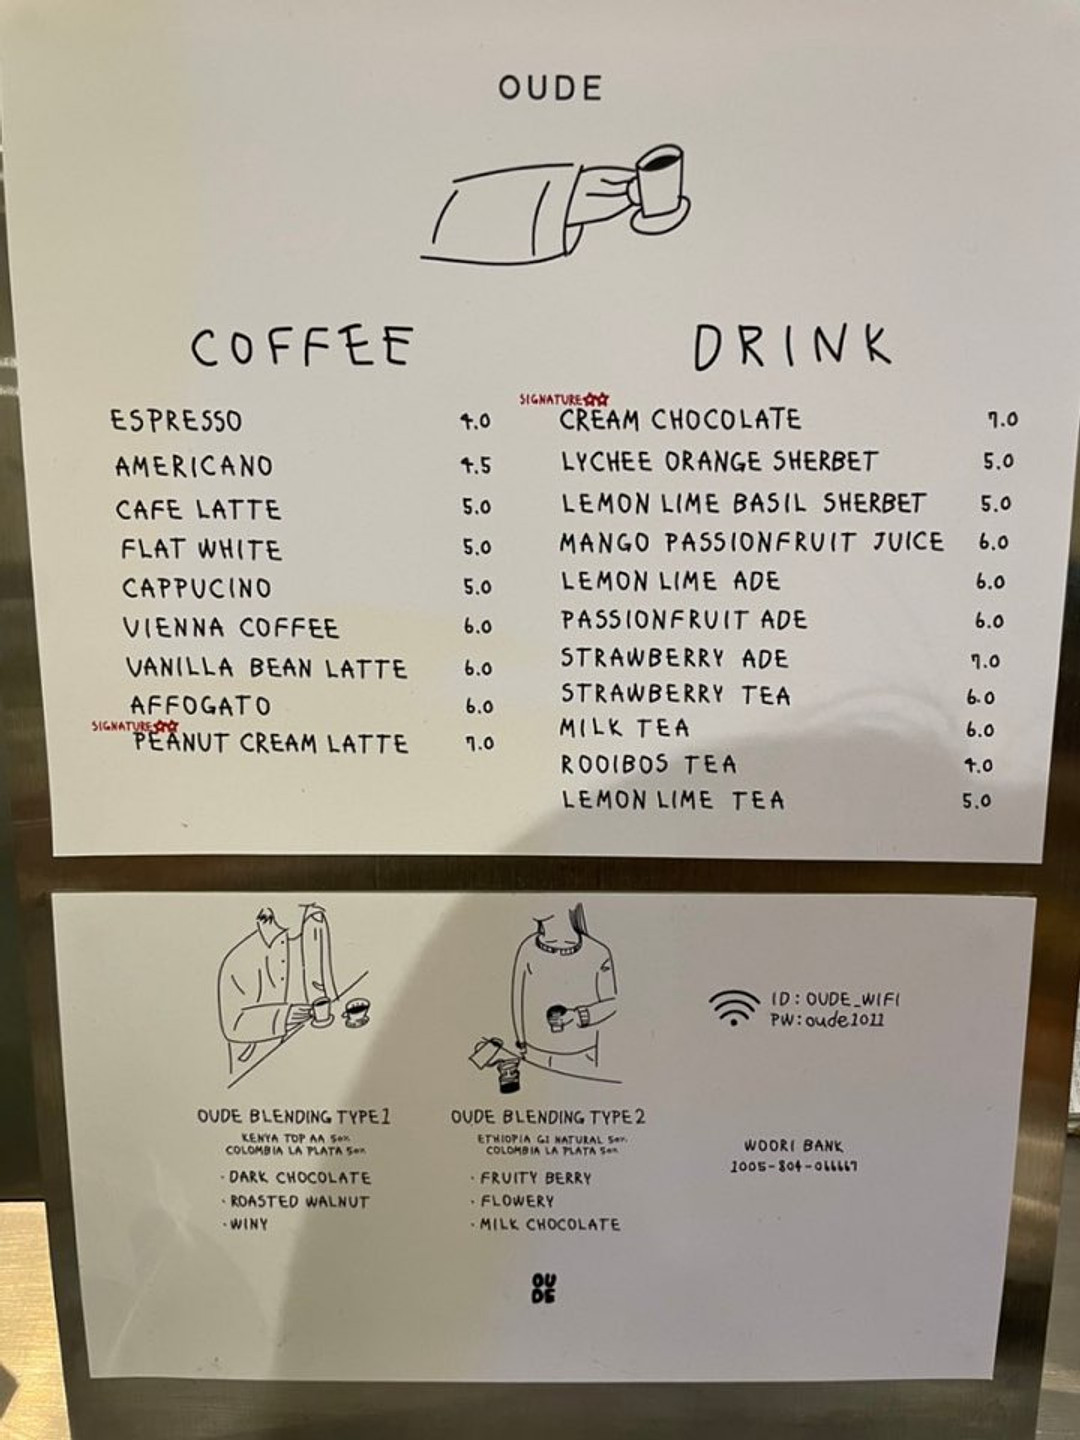 OUDE
COFFEE
ESPRESSO 4.0
AMERICANO 4.5
CAFE LATTE 5.0
FLAT WHITE 5.0
CAPPUCINO 5.0
VIENNA COFFEE 6.0
VANILLA BEAN LATTE 6.0
AFFOGATO 6.0
SIGNATURE☆☆
PEANUT CREAM LATTE 7.0
DRINK
SIGNATURE☆☆
CREAM CHOCOLATE 7.0
LYCHEE ORANGE SHERBET 5.0
LEMON LIME BASIL SHERBET 5.0
MANGO PASSIONFRUIT JUICE 6.0
LEMON LIME ADE 6.0
PASSIONFRUIT ADE 6.0
STRAWBERRY ADE 7.0
STRAWBERRY TEA 6.0
MILK TEA 6.0
ROOIBOS TEA 4.0
LEMON LIME TEA 5.0
OUDE BLENDING TYPE1
KENYA TOP AA 50%
COLOMBIA LA PLATA 50%
· DARK CHOCOLATE
· ROASTED WALNUT
· WINY
OUDE BLENDING TYPE2
ETHIOPIA G1 NATURAL 50%
COLOMBIA LA PLATA 50%
· FRUITY BERRY
· FLOWERY
· MILK CHOCOLATE
ID: OUDE_WIFI
PW: oude1011
WOORI BANK
1005-804-066667
OU
DE